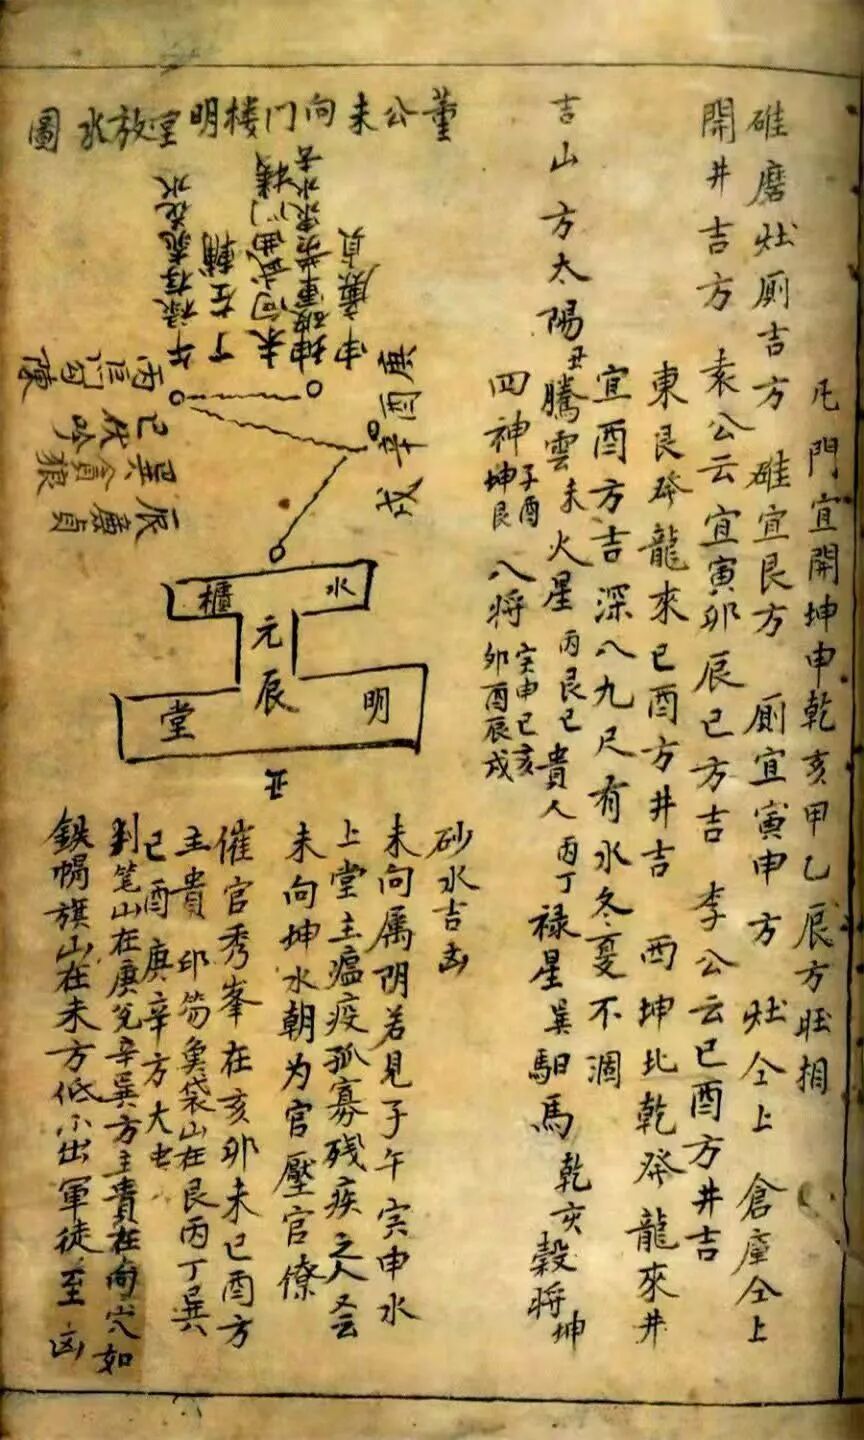 凡門宜開坤申乾亥甲乙辰方旺相
碓磨灶厠吉方 碓宜艮方 厠宜寅申方 灶仝上 倉庫仝上
開井吉方 袁公云宜寅卯辰巳方吉 李公云巳酉方井吉
東艮癸龍來巳酉方井吉 西坤北乾癸龍來井
宜酉方吉深八九尺有水冬夏不涸
吉山方太陽丑騰雲未火星丙艮巳貴人丙丁禄星巽馹馬乾亥穀将坤
四神子酉坤艮八将寅申巳亥卯酉辰戌
董公未向門楼明堂放水圖
申廉貞
坤破軍
未向武曲門楼
丁左輔
午禄存
辰廉貞
巽貪狼
水櫃
元辰
明堂
丑
砂水吉凶
未向属阴若見子午寅申水
上堂主瘟疫孤寡残疾之人又云
未向坤水朝为官壓官僚
催官秀峯在亥卯未巳酉方
主貴 印笏魚袋山在艮丙丁巽
巳酉庚辛方大吉
判笔山在庚兌辛巽方主貴在向穴如
鉄帽旗山在未方低小出軍徒至凶